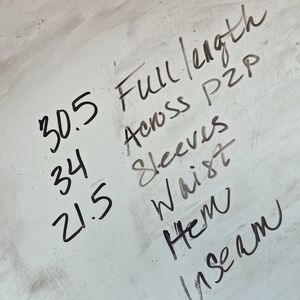 30.5 Full length
34 Across P2P
21.5 Sleeves
Waist
Hem
Inseam